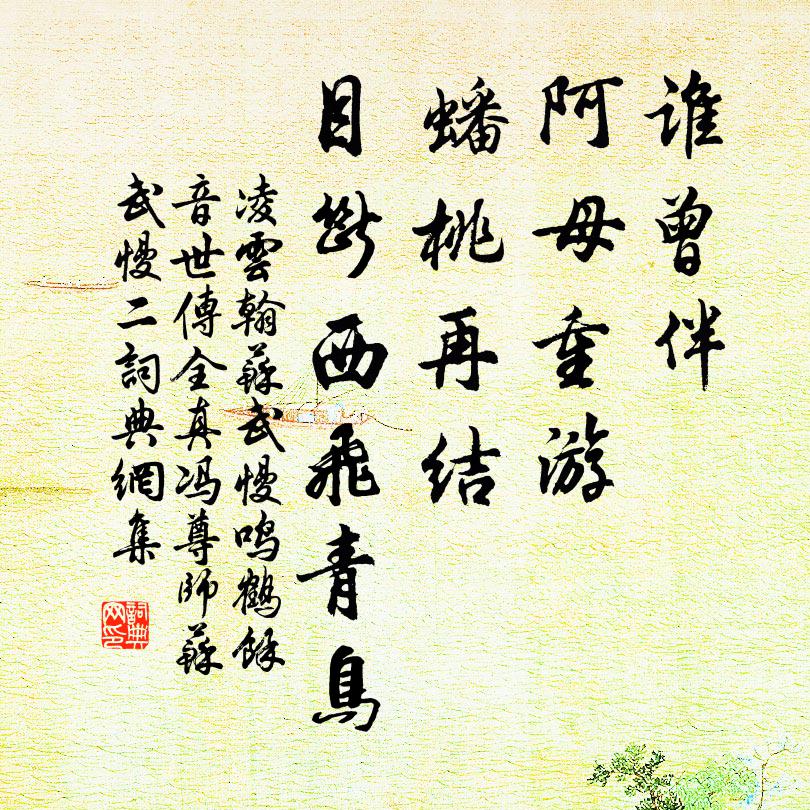 谁曾伴
阿母重游
蟠桃再结
目断西飛青鳥
凌雲翰蘇武慢鸣鶴餘
音世傳全真冯尊師蘇
武慢二詞典網集
詞典网印